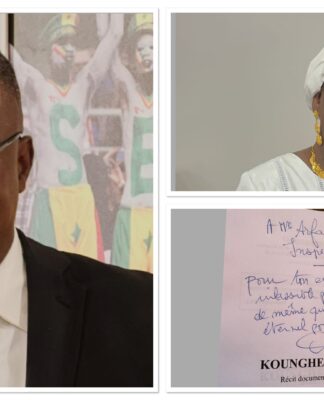 S E
A Mme Arfa
Inspe
pour ton
inlassible
de même qu
éternel
KOUNGHE
Récit document